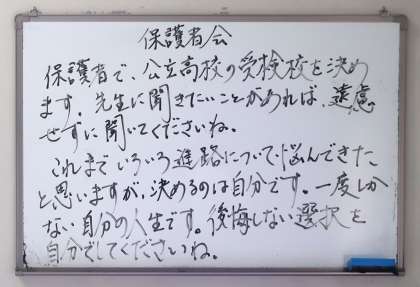 保護者会
保護者で、公立高校の受検校を決め
ます。先生に聞きたいことがあれば、遠慮
せずに聞いてくださいね。
これまでいろいろ進路について悩んできた
と思いますが、決めるのは自分です。一度しか
ない自分の人生です。後悔しない選択を
自分でしてくださいね。